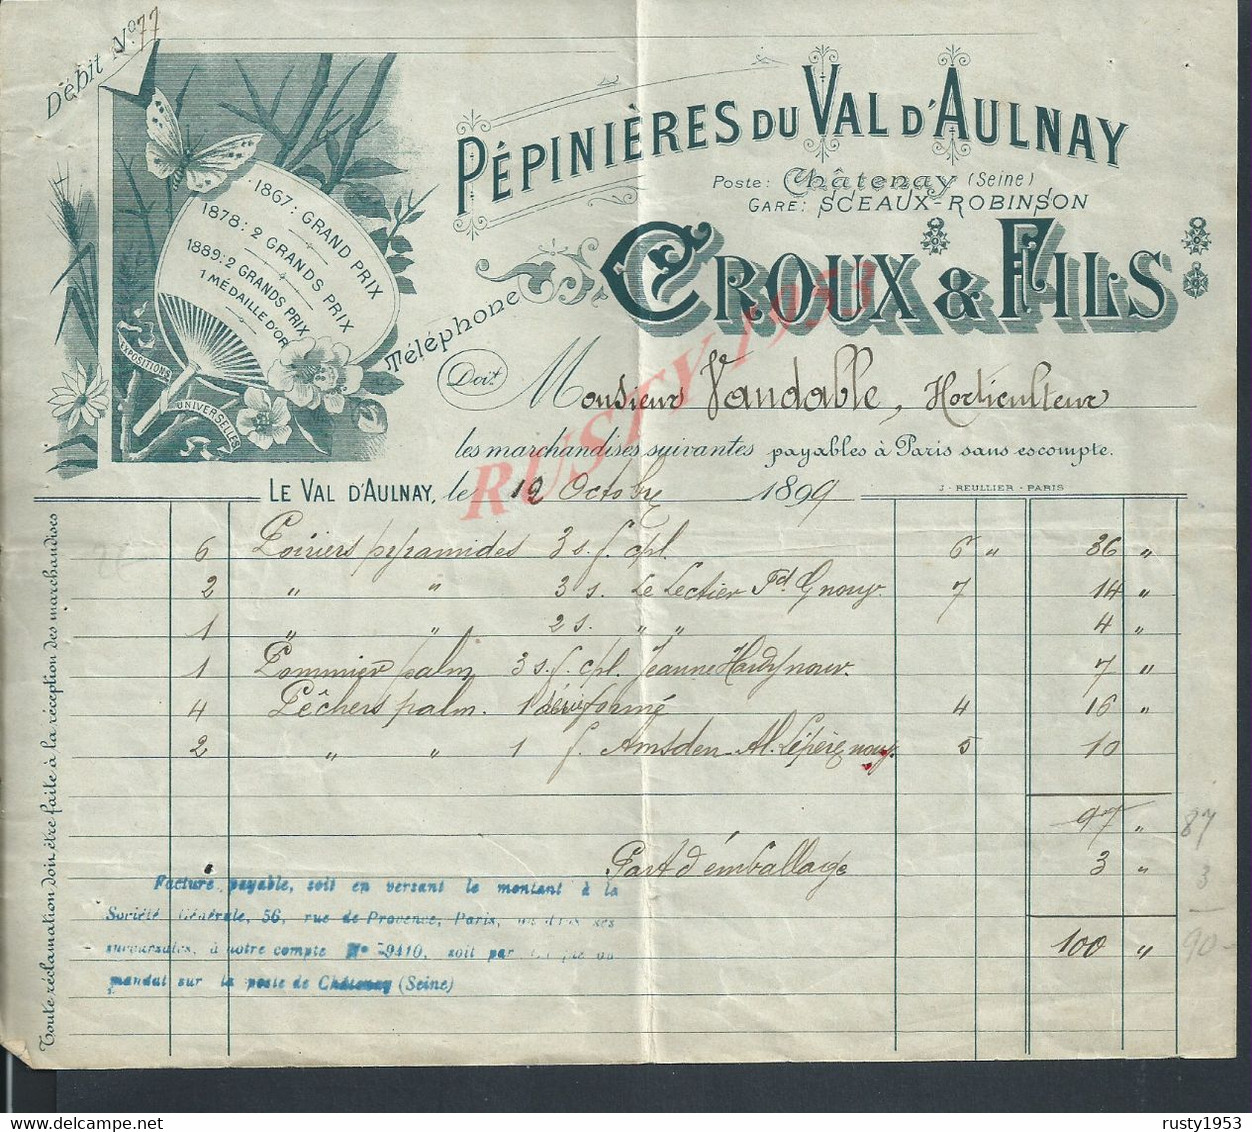 Débit No 77
PÉPINIÈRES DU VAL D'AULNAY
Poste: Châtenay (Seine)
GARE: SCEAUX-ROBINSON
CROUX & FILS
1867: GRAND PRIX
1878: 2 GRANDS PRIX
1889: 2 GRANDS PRIX
1 MÉDAILLE D'OR
EXPOSITIONS
UNIVERSELLES
Téléphone
Doit
Monsieur Vandable, Horticulteur
les marchandises suivantes payables à Paris sans escompte.
LE VAL D'AULNAY, le 12 Octobre 1899
J. REULLIER - PARIS
RUSTY 1953
Toute réclamation doit être faite à la réception des marchandises
6 Poiriers pyramides 3 s. f. cpl. 6 " 36 "
2 " " 3 s. Le Lectier 7 14 "
1 " " 2 s. " " 4 "
1 Pommier palm. 3 s. f. cpl. Jeanne Hardy nouv. 7 "
4 Pêchers palm. 1 série formé 4 16 "
2 " " 1 f. Amsden 5 10
97 " 87
Part d'emballage 3 " 3
100 " 90-
Facture payable, soit en versant le montant à la
Société Générale, 56, rue de Provence, Paris, ou dans ses
succursales, à notre compte No 9410, soit par
mandat sur la poste de Châtenay (Seine)
rusty1953